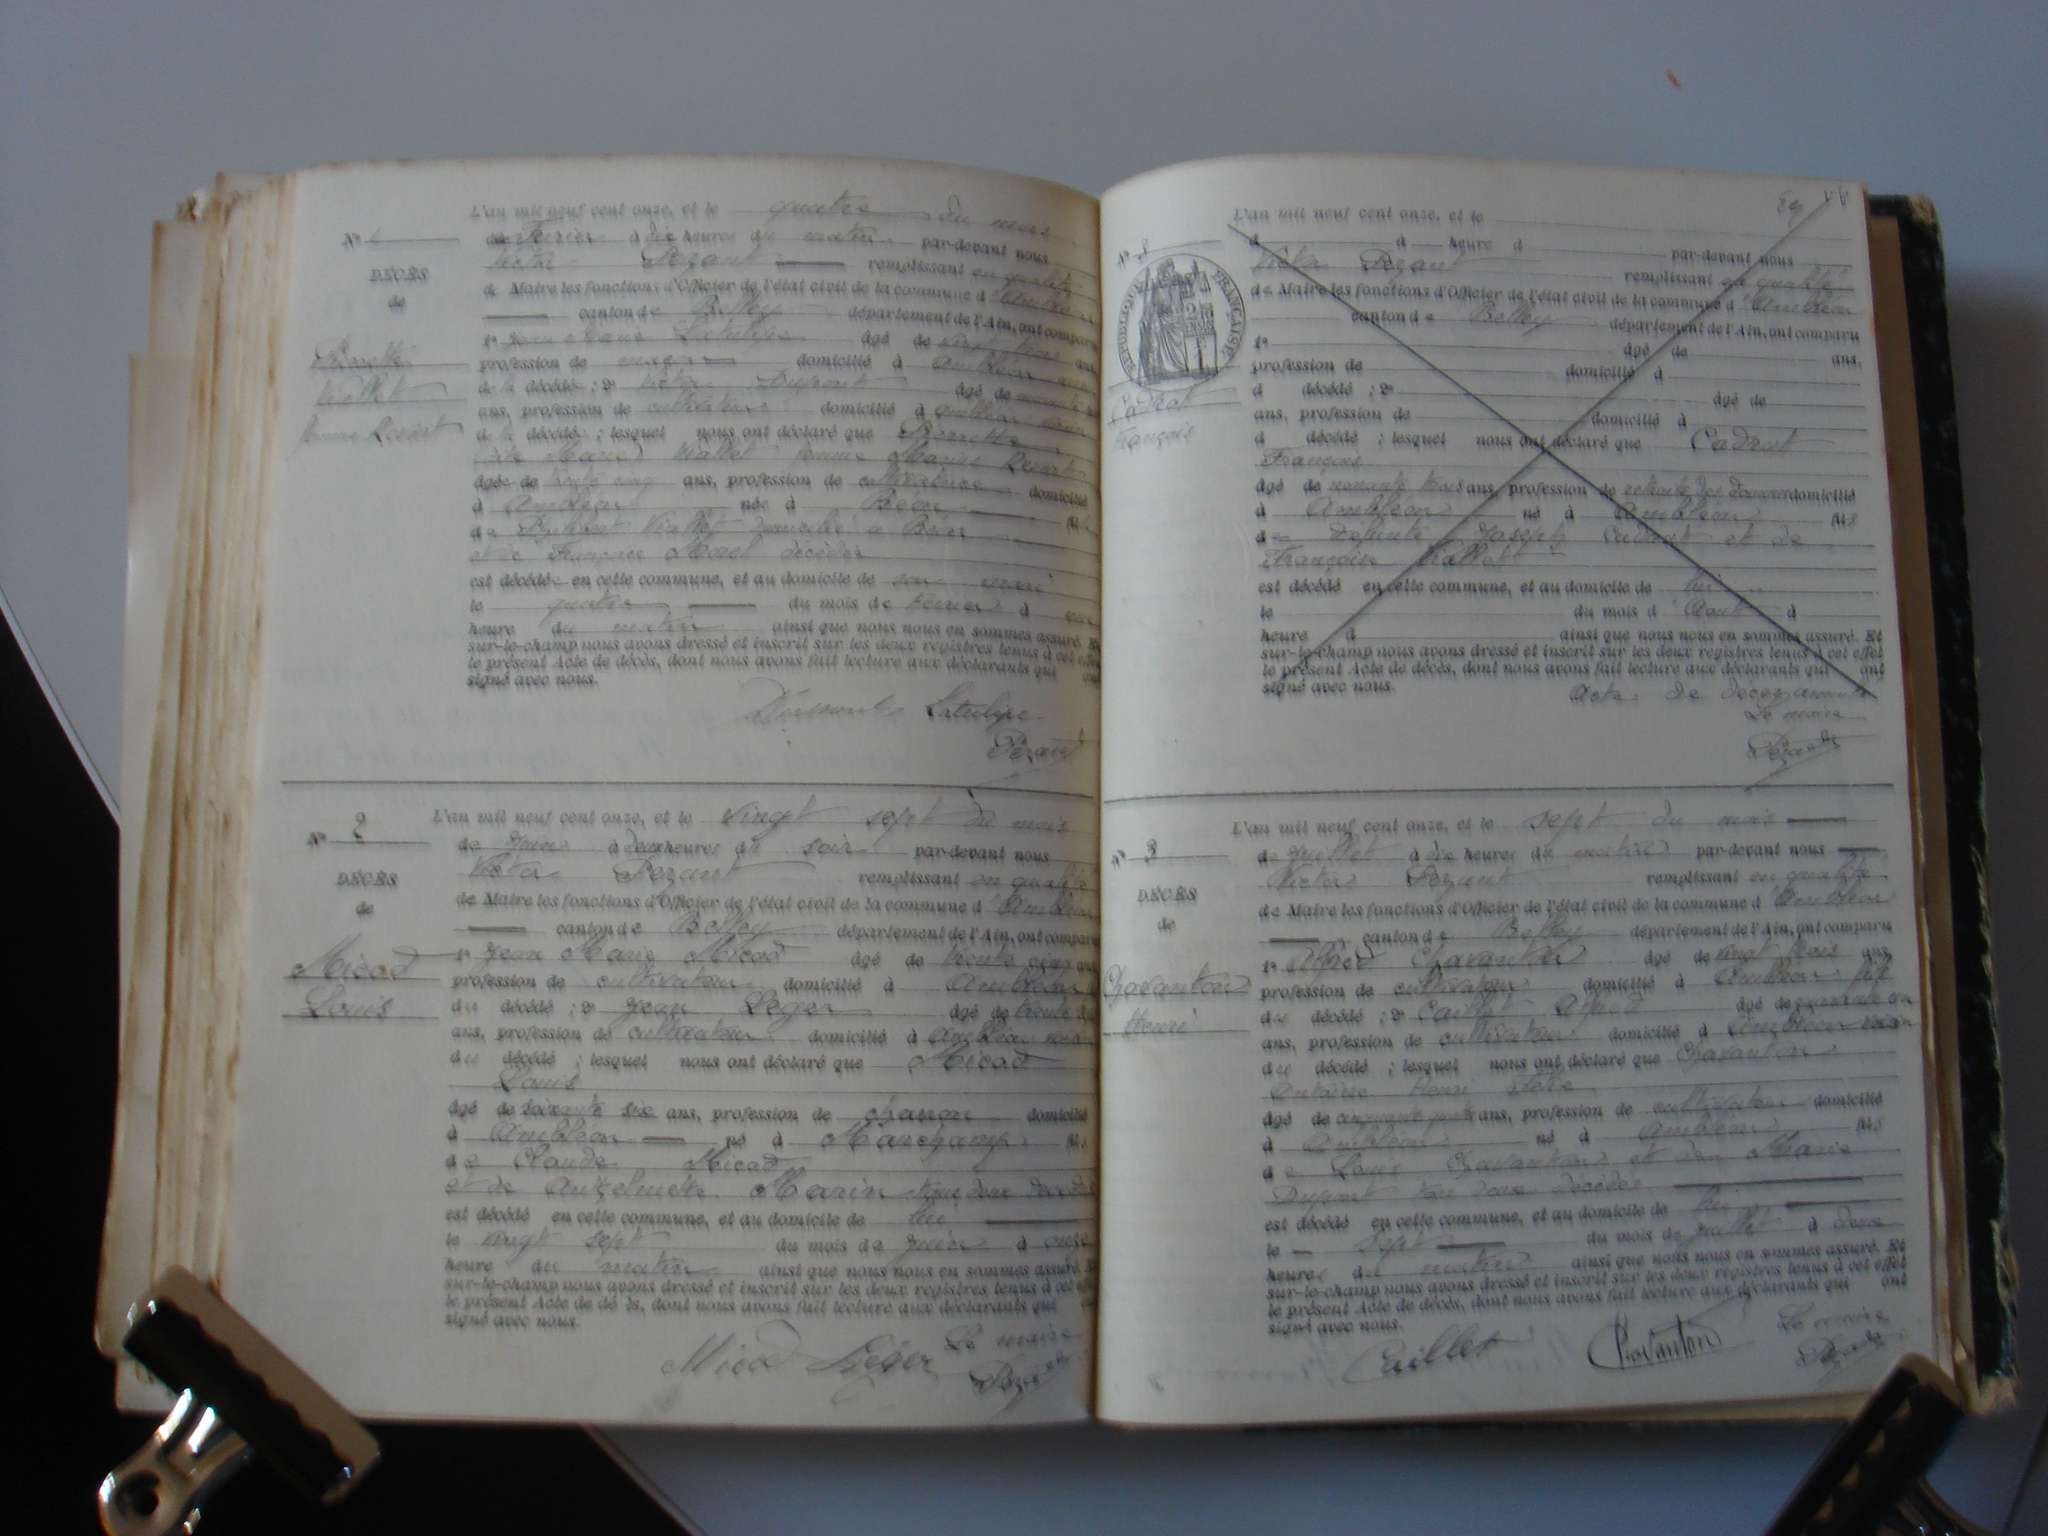 L'an mil neuf cent onze, et le quatre du mois
de Février à dix heures du matin par-devant nous
Victor Pezant remplissant en qualité
de Maire les fonctions d'Officier de l'état civil de la commune d'Ambléon
canton de Belley département de l'Ain, ont comparu
1° Latulipe âgé de
profession de domicilié à Ambléon
de la décédée ; 2° Victor Dupont âgé de
ans, profession de cultivateur domicilié à Ambléon voisin
de la décédée ; lesquel nous ont déclaré que Pierrette
Viallet femme
âgée de trente cinq ans, profession de cultivatrice domicilié
à Ambléon née à Béon fille
de Viallet domicilié à Béon
et de Françoise Morel décédée
est décédée en cette commune, et au domicile de son mari
le quatre du mois de Février à une
heure du matin ainsi que nous nous en sommes assuré. Et
sur-le-champ nous avons dressé et inscrit sur les deux registres tenus à cet effet
le présent Acte de décès, dont nous avons fait lecture aux déclarants qui ont
signé avec nous.
Latulipe
Pezant
N°
DÉCÈS
de
Pierrette
Viallet
femme
L'an mil neuf cent onze, et le vingt sept du mois
de Juin à deux heures du soir par-devant nous
Victor Pezant remplissant en qualité
de Maire les fonctions d'Officier de l'état civil de la commune d'Ambléon
canton de Belley département de l'Ain, ont comparu
1° Jean Marie Micod âgé de trente cinq ans
profession de cultivateur domicilié à Ambléon
du décédé ; 2° Jean Leger âgé de trente
ans, profession de cultivateur domicilié à Ambléon voisin
du décédé ; lesquel nous ont déclaré que Micod
Louis
âgé de soixante six ans, profession de charron domicilié
à Ambléon né à Marchamp fils
de Claude Micod
et de Anthelmette Marin tous deux décédés
est décédé en cette commune, et au domicile de lui
le vingt sept du mois de Juin à onze
heure du matin ainsi que nous nous en sommes assuré. Et
sur-le-champ nous avons dressé et inscrit sur les deux registres tenus à cet effet
le présent Acte de décès, dont nous avons fait lecture aux déclarants qui
signé avec nous.
Micod Léger Le maire
Pezant
N° 2
DÉCÈS
de
Micod
Louis
L'an mil neuf cent onze, et le
d à heure d par-devant nous
Victor Pezant remplissant en qualité
de Maire les fonctions d'Officier de l'état civil de la commune d'Ambléon
canton de Belley département de l'Ain, ont comparu
1° âgé de ans,
profession de domicilié à
d décédé ; 2° âgé de
ans, profession de domicilié à
d décédé ; lesquel nous ont déclaré que Cadrot
François
âgé de ans, profession de retraité des douanes domicilié
à Ambléon né à Ambléon fils
de défunts Joseph Cadrot et de
Françoise
est décédé en cette commune, et au domicile de lui
le du mois d'Août à
heure d ainsi que nous nous en sommes assuré. Et
sur-le-champ nous avons dressé et inscrit sur les deux registres tenus à cet effet
le présent Acte de décès, dont nous avons fait lecture aux déclarants qui ont
signé avec nous.
Acte de
Le maire
Pezant
N°
RÉPUBLIQUE FRANÇAISE
Cadrot
François
L'an mil neuf cent onze, et le sept du mois
de Juillet à dix heures du matin par-devant nous
Victor Pezant remplissant en qualité
de Maire les fonctions d'Officier de l'état civil de la commune d'Ambléon
canton de Belley département de l'Ain, ont comparu
1° Alfred Chavanton âgé de vingt trois ans,
profession de cultivateur domicilié à Ambléon fils
du décédé ; 2° Caillet Alfred âgé de quarante
ans, profession de cultivateur domicilié à Ambléon voisin
du décédé ; lesquel nous ont déclaré que Chavanton
Antoine Henri
âgé de cinquante ans, profession de cultivateur domicilié
à Ambléon né à Ambléon fils
de Louis Chavanton et de Marie
Dupont tous deux décédés
est décédé en cette commune, et au domicile de lui
le sept du mois de Juillet à deux
heures du matin ainsi que nous nous en sommes assuré. Et
sur-le-champ nous avons dressé et inscrit sur les deux registres tenus à cet effet
le présent Acte de décès, dont nous avons fait lecture aux déclarants qui ont
signé avec nous.
Caillet Chavanton Le maire
Pezant
N° 3
DÉCÈS
de
Chavanton
Henri